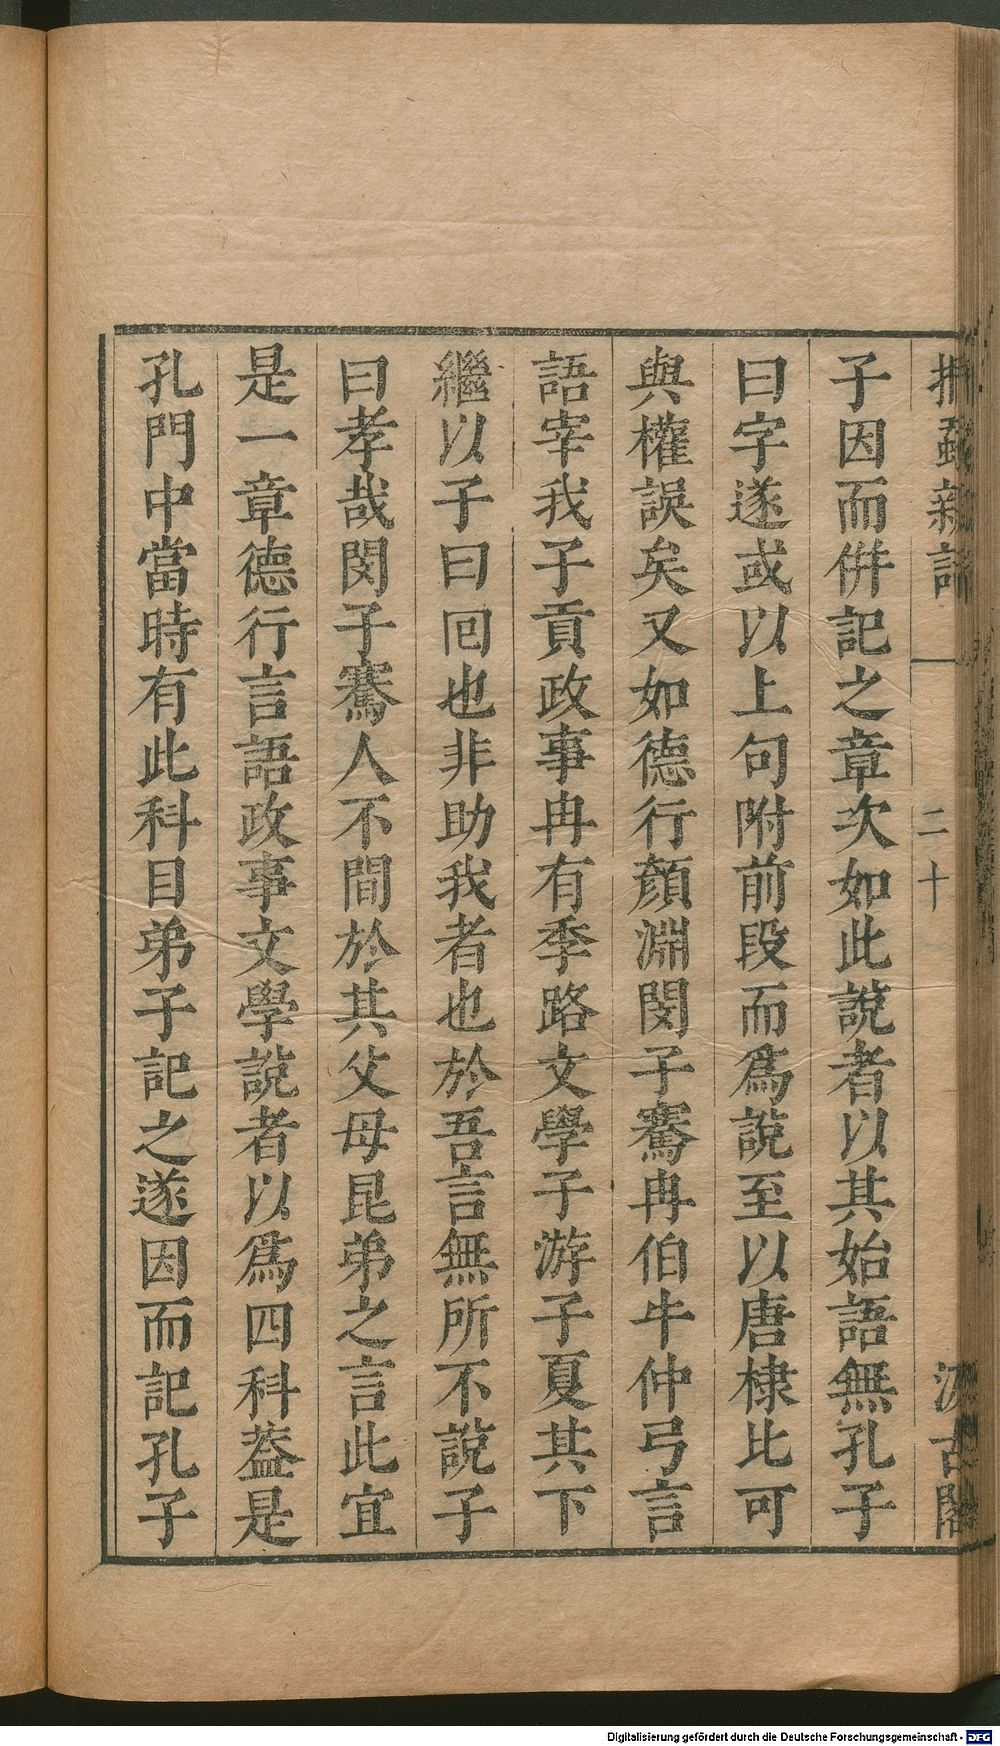 捫蝨新話 一 二十 汲古閣
子因而併記之章次如此說者以其始語無孔子
曰字遂或以上句附前段而爲說至以唐棣比可
與權誤矣又如德行顏淵閔子騫冉伯牛仲弓言
語宰我子貢政事冉有季路文學子游子夏其下
繼以子曰回也非助我者也於吾言無所不說子
曰孝哉閔子騫人不間於其父母昆弟之言此宜
是一章德行言語政事文學說者以爲四科葢是
孔門中當時有此科目弟子記之遂因而記孔子
Digitalisierung gefördert durch die Deutsche Forschungsgemeinschaft - DFG